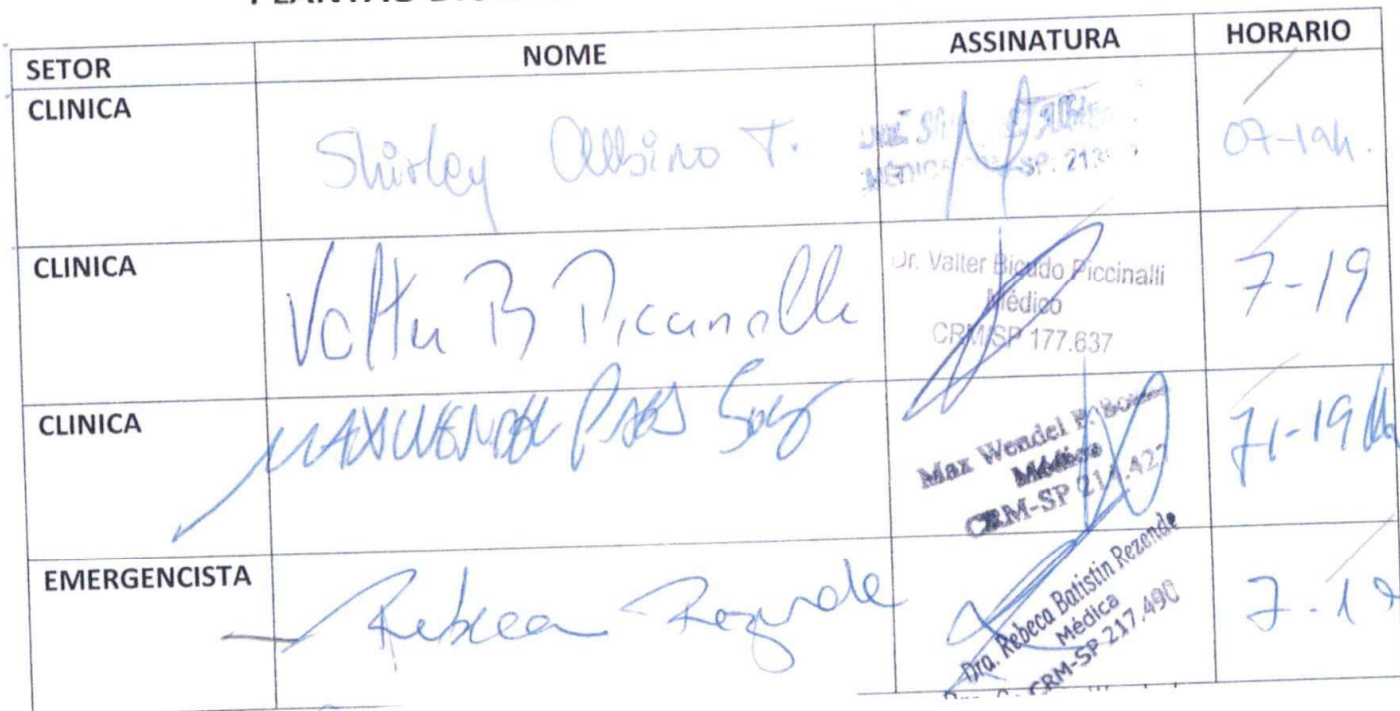 SETOR NOME ASSINATURA HORARIO
CLINICA Shirley Albino T. 07-19h.
CLINICA Valter B Piccinalli Dr. Valter Bicudo Piccinalli 7-19
Médico
CRM/SP 177.637
CLINICA MAXWENDEL Max Wendel P. 71-19h
Médico
CRM-SP
EMERGENCISTA Rebeca Rezende Dra. Rebeca Batistin Rezende 7-19
Médica
CRM-SP 217.490